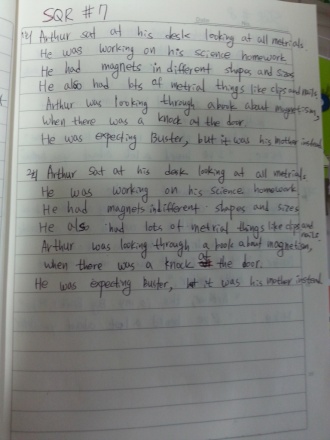 SQR #7
1) Arthur sat at his desk looking at all metrials.
He was working on his science homework
He had magnets in different shapes and sizes
He also had lots of metrial things like clips and nails.
Arthur was looking through a book about magnetism,
when there was a knock at the door.
He was expecting Buster, but it was his mother instead
2) Arthur sat at his desk looking at all metrials
He was working on his science homework
He had magnets indifferent shapes and sizes
He also had lots of metrial things like clips and nails.
Arthur was looking through a book about magnetism,
when there was a knock at the door.
He was expecting Buster, but it was his mother instead